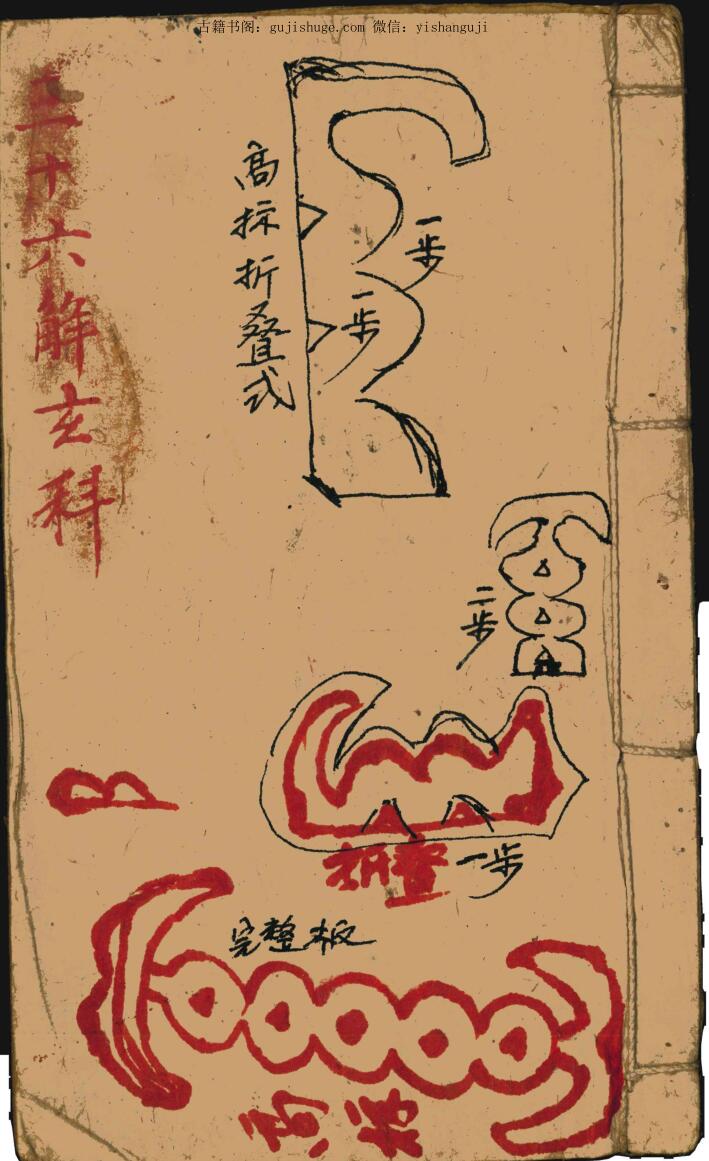 古籍书阁：gujishuge.com 微信：yishanguji
三十六解玄科
高标折叠式
一步
一步
二步
折叠
一步
完整板
高标